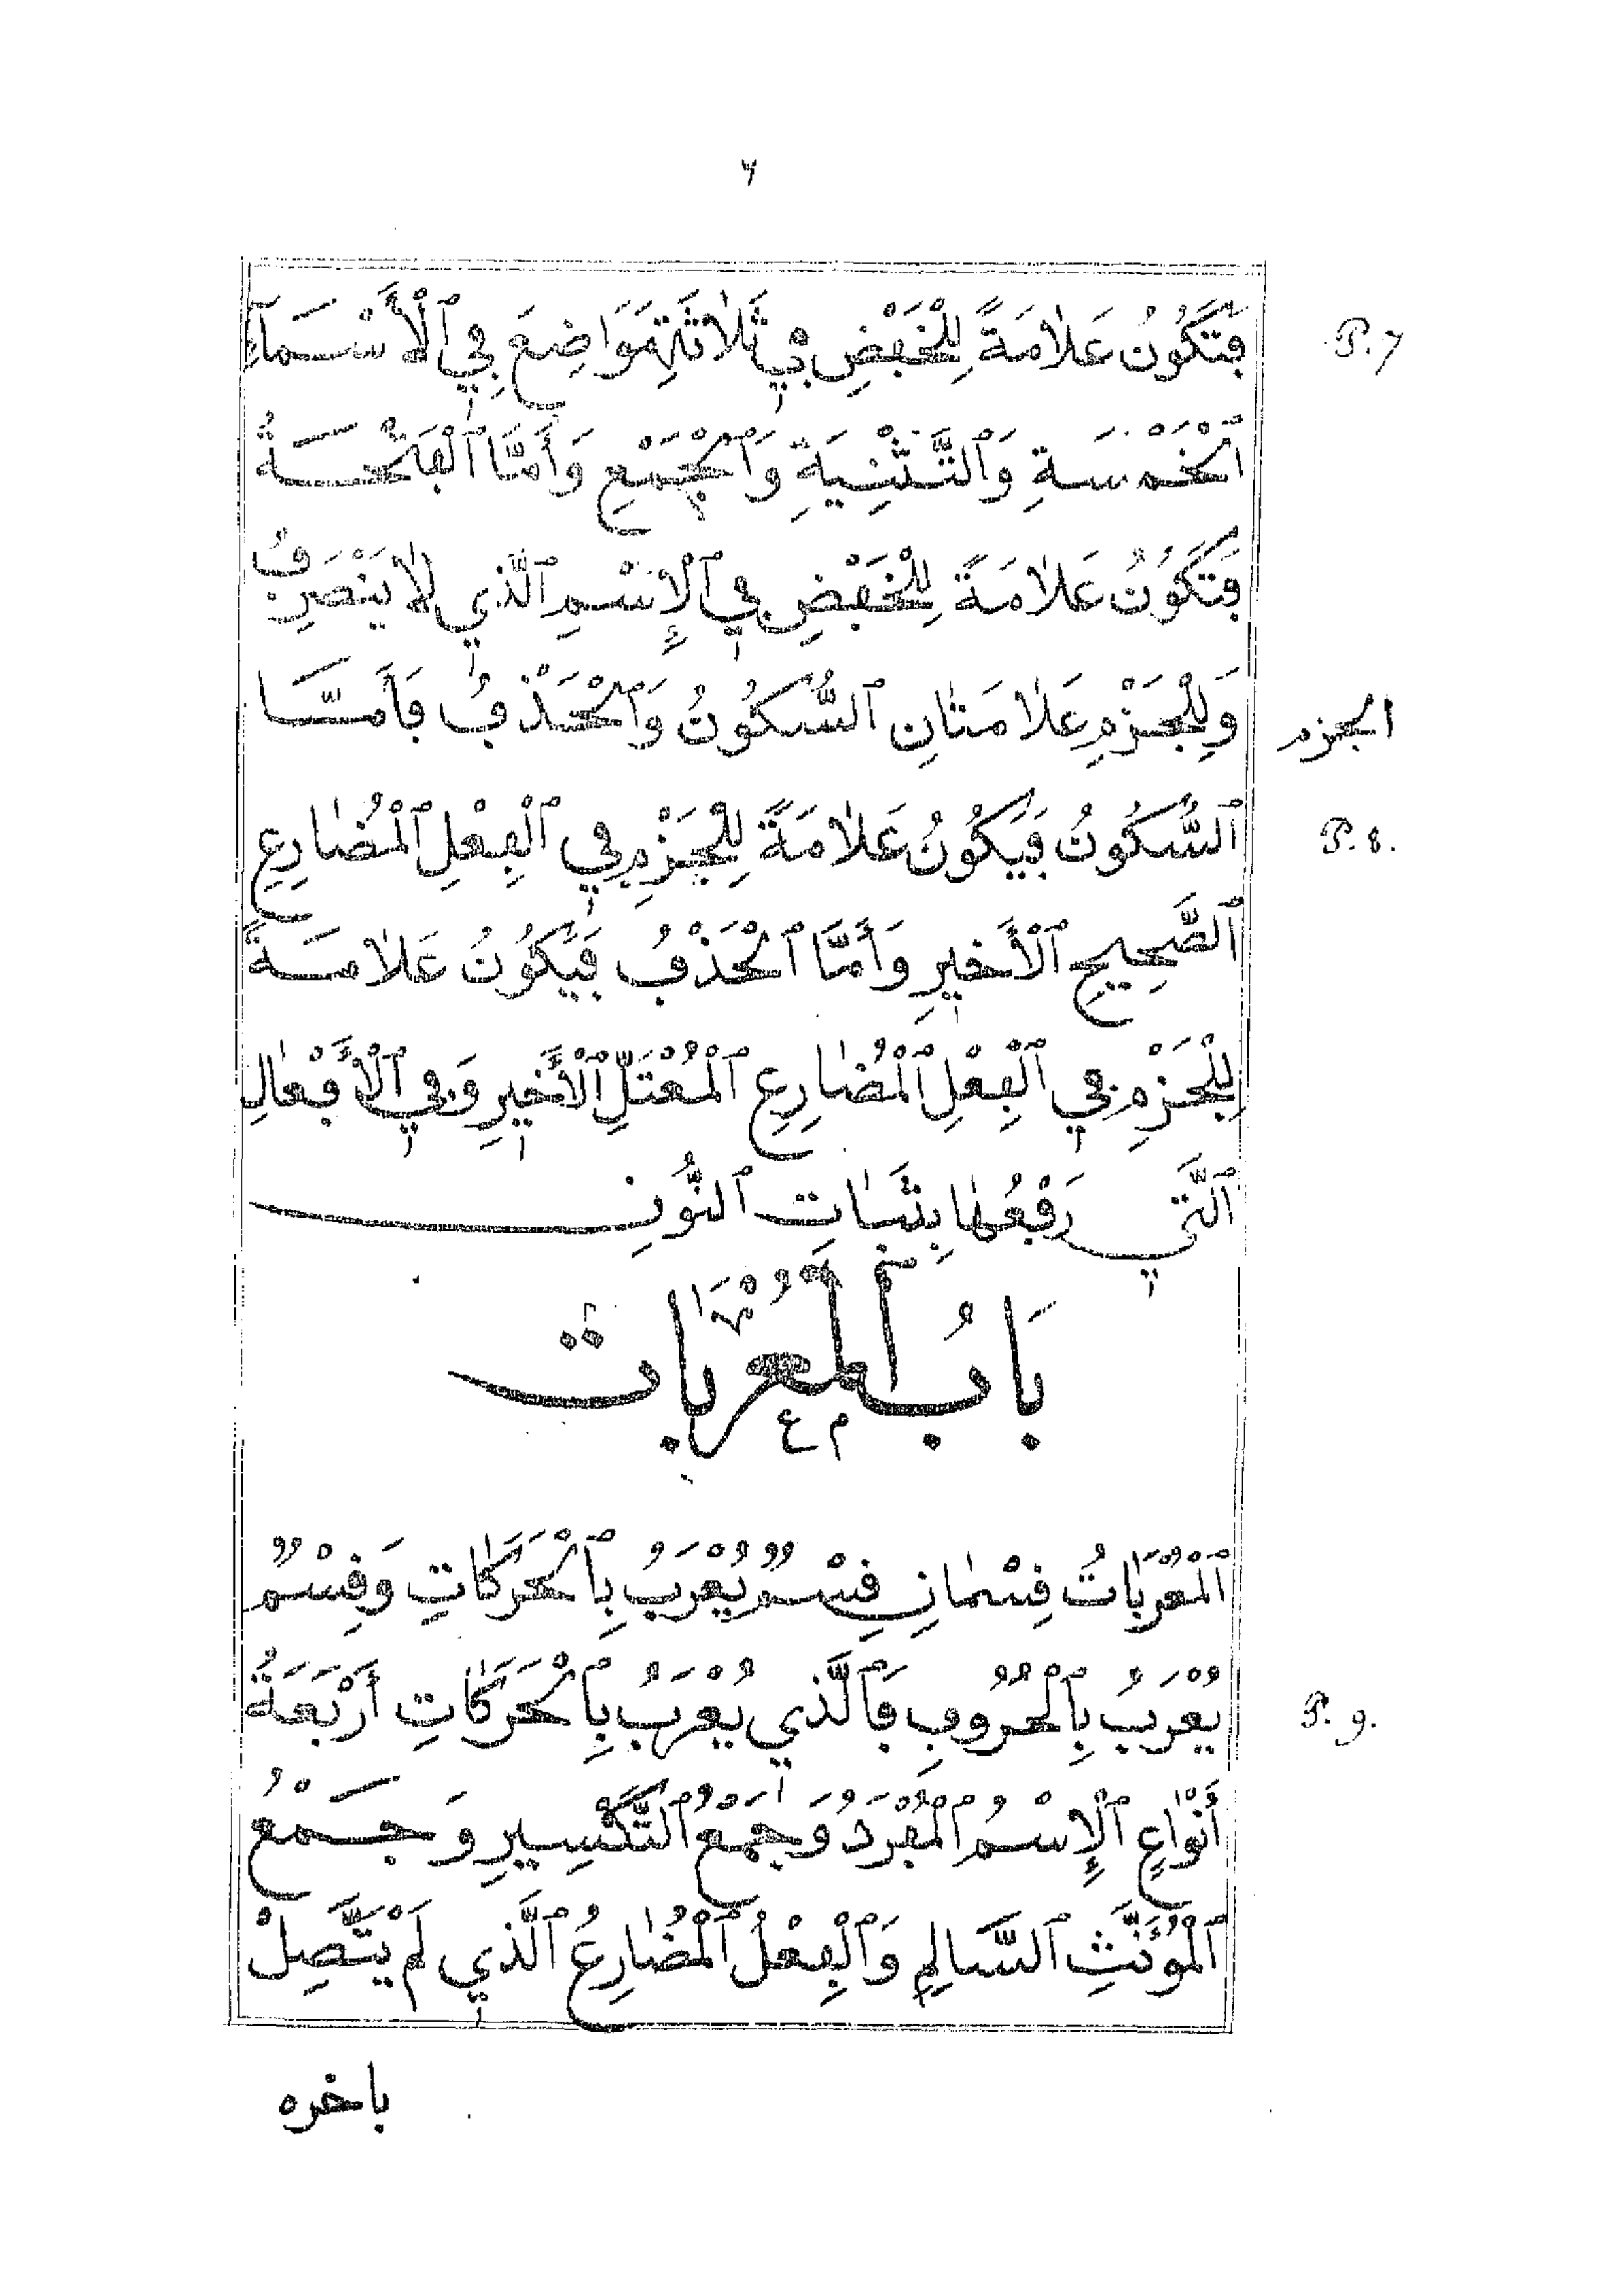 ٦
فَتَكُونُ عَلَامَةً لِلْخَفْضِ فِي ثَلَاثَةِ مَوَاضِعَ فِي ٱلْأَسْمَآءِ
P. 7
ٱلْخَمْسَةِ وَٱلتَّثْنِيَةِ وَٱلْجَمْعِ وَأَمَّا ٱلْفَتْحَةُ
فَتَكُونُ عَلَامَةً لِلْخَفْضِ فِي ٱلْإِسْمِ ٱلَّذِي لَا يَنْصَرِفُ
وَلِلْجَزْمِ عَلَامَتَانِ ٱلسُّكُونُ وَٱلْحَذْفُ فَأَمَّا
الجزم
ٱلسُّكُونُ فَيَكُونُ عَلَامَةً لِلْجَزْمِ فِي ٱلْفِعْلِ ٱلْمُضَارِعِ
P. 8.
ٱلصَّحِيحِ ٱلْأَخِيرِ وَأَمَّا ٱلْحَذْفُ فَيَكُونُ عَلَامَةً
لِلْجَزْمِ فِي ٱلْفِعْلِ ٱلْمُضَارِعِ ٱلْمُعْتَلِّ ٱلْأَخِيرِ وَفِي ٱلْأَفْعَالِ
ٱلَّتِي رَفْعُهَا بِثَبَاتِ ٱلنُّونِ
بَابُ ٱلْمُعْرَبَاتِ
ٱلْمُعْرَبَاتُ قِسْمَانِ قِسْمٌ يُعْرَبُ بِٱلْحَرَكَاتِ وَقِسْمٌ
يُعْرَبُ بِٱلْحُرُوفِ فَٱلَّذِي يُعْرَبُ بِٱلْحَرَكَاتِ أَرْبَعَةُ
P. 9.
أَنْوَاعٍ ٱلْإِسْمُ ٱلْمُفْرَدُ وَجَمْعُ ٱلتَّكْسِيرِ وَجَمْعُ
ٱلْمُؤَنَّثِ ٱلسَّالِمِ وَٱلْفِعْلُ ٱلْمُضَارِعُ ٱلَّذِي لَمْ يَتَّصِلْ
باخره